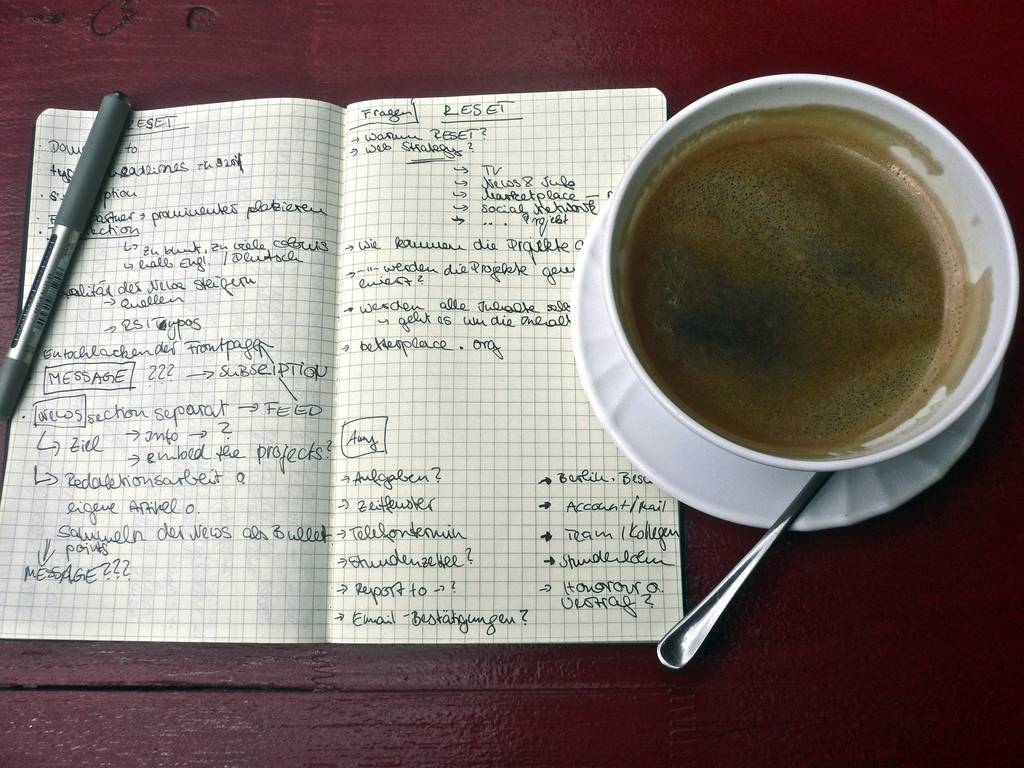 RESET
to
prominenter platzieren
ection
↳ zu bunt, zu viele colours
↳ halb Engl. / Deutsch
alität der News steigern
→ quellen
→ RS / Typos
Entschlacken der Frontpage
MESSAGE ??? → SUBSCRIPTION
· News section separat → FEED
↳ Ziel → Info → ?
→ embed the projects?
↳ Redaktionsarbeit o.
eigene Artikel o.
Sammeln der News als Bullet
points
MESSAGE???
Fragen RESET
→ Warum RESET?
→ Web Strategy?
→ TV
→ News & Info
→ Marketplace
→ social Network
→ .. . Projekt
→ Wie kommen die Projekte
→ -"- werden die Projekte gew
→ werden alle Inhalte
→ geht es um die Inhalt
→ betterplace.org
Amy
→ Aufgaben?
→ Zeitfenster
→ Telefontermin
→ Stundenzettel?
→ Report to → ?
→ Email-Bestätigungen?
→ Berlin. Besu
→ Account/Mail
→ Team / Kollegen
→ Stundenlohn
→ Honorar o.
Vertrag?